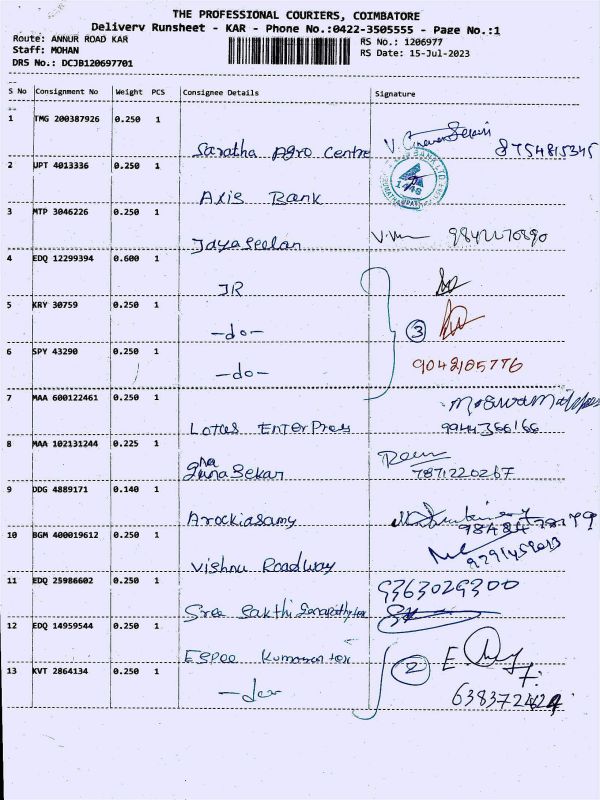 THE PROFESSIONAL COURIERS, COIMBATORE
Delivery Runsheet - KAR - Phone No.:0422-3505555 - Page No.:1
Route: ANNUR ROAD KAR
RS No.: 1206977
Staff: MOHAN
RS Date: 15-Jul-2023
DRS No.: DCJB120697701
S No Consignment No Weight PCS Consignee Details Signature
1 TMG 200387926 0.250 1 Saratha Agro Centre V. 8754815345
2 JPT 4013336 0.250 1 Axis Bank 1448
3 MTP 3046226 0.250 1 Jayaseelan
4 EDQ 12299394 0.600 1 JR
5 KRY 30759 0.250 1 -do- 3
6 SPY 43290 0.250 1 -do- 9042105776
7 MAA 600122461 0.250 1 Lotus Enterpress
8 MAA 102131244 0.225 1 Gunasekar 7871220267
9 DDG 4889171 0.140 1 Arockiasamy
10 BGM 400019612 0.250 1 Vishnu Roadway
11 EDQ 25986602 0.250 1 Sree Sakthi 9363029300
12 EDQ 14959544 0.250 1 2 E
13 KVT 2864134 0.250 1 -do-